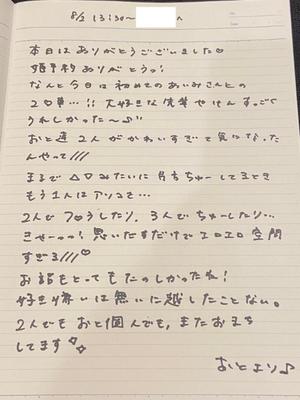 8/2 13:30~ へ
本日はありがとうございました♡
ありがとうっ!
なんと今日は初めてのあいみさんとの
2◯車…!! 大好きな先輩やけん すっごく
うれしかった〜♪"
おと達2人がかわいすぎて気になった
んやって///
まるで△♡みたいに 片方ちゅーしてるとき
もう1人はアソコを…
2人でフ♡うしたり、3人でちゅーしたり…
きゃーっっ! 思いだすだけでエロエロ空間
すぎる///♡
お話もとってもたのしかったね!
好き嫌いは無いに越したことない。
2人でもおと個人でも、またおまち
してます✧
おとより♪